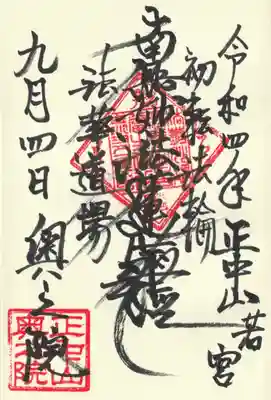 令和四年 正中山 若宮
初轉法輪
南無妙法蓮華経
法華道場
九月四日 奥之院
正中山
奥之院